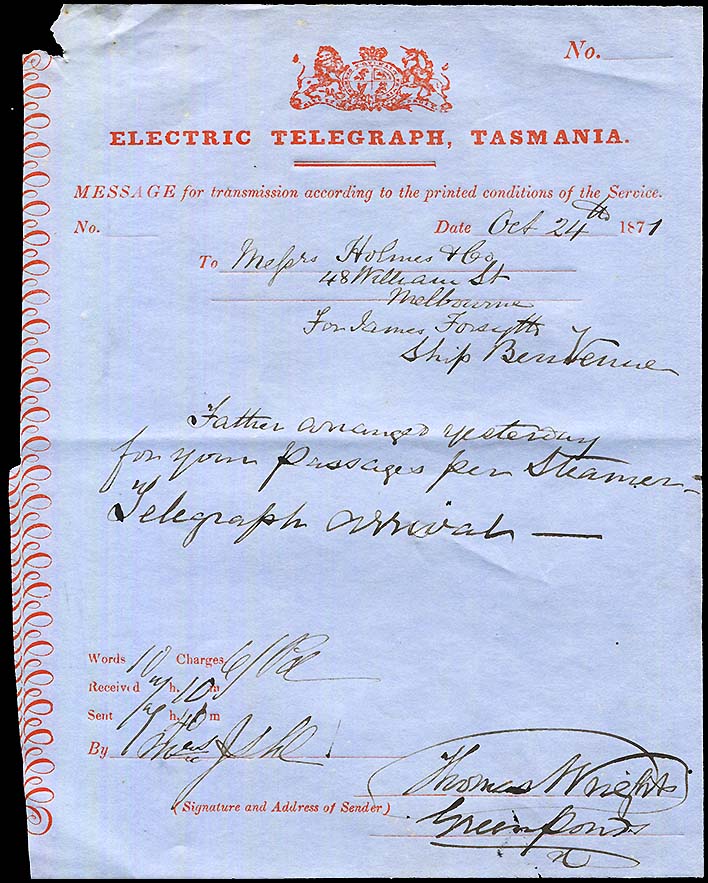 No.
ELECTRIC TELEGRAPH, TASMANIA.
MESSAGE for transmission according to the printed conditions of the Service.
No. Date Oct 24th 1871
To Messrs Holmes & Co
48 William St
Melbourne
For James Forsyth
Ship Benvenue
Father arranged yesterday
for your passages per Steamer -
Telegraph arrival —
Words 10 Charges 6/ Pd
Received h. 10 m
Sent h. m
By
Thomas Wright
(Signature and Address of Sender)
Green Ponds